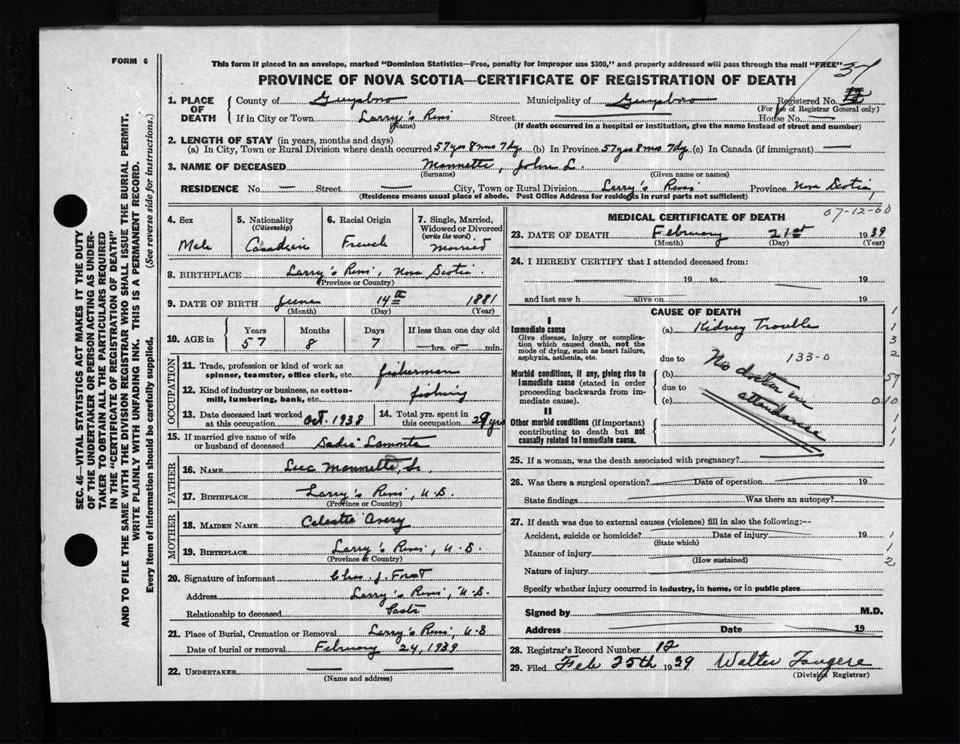 FORM 6
This form if placed in an envelope, marked "Dominion Statistics—Free, penalty for improper use $300," and properly addressed will pass through the mail "FREE"
37
PROVINCE OF NOVA SCOTIA—CERTIFICATE OF REGISTRATION OF DEATH
1. PLACE OF DEATH
County of Guysboro Municipality of Guysboro Registered No.
(For use of Registrar General only)
If in City or Town Larry's River Street — House No. —
(Name) (If death occurred in a hospital or institution, give the name instead of street and number)
2. LENGTH OF STAY (in years, months and days)
(a) In City, Town or Rural Division where death occurred 57 yrs 8 mos 7 dy (b) In Province 57 yrs 8 mos 7 dy (c) In Canada (if immigrant) —
3. NAME OF DECEASED Mannette, John L.
(Surname) (Given name or names)
RESIDENCE No. — Street — City, Town or Rural Division Larry's River Province Nova Scotia
(Residence means usual place of abode. Post Office Address for residents in rural parts not sufficient)
4. Sex
Male
5. Nationality
(Citizenship)
Canadian
6. Racial Origin
French
7. Single, Married, Widowed or Divorced
(write the word)
Married
8. BIRTHPLACE Larry's River, Nova Scotia
(Province or Country)
9. DATE OF BIRTH June 14th 1881
(Month) (Day) (Year)
10. AGE in
Years Months Days If less than one day old
57 8 7 — hrs. or — min.
OCCUPATION
11. Trade, profession or kind of work as spinner, teamster, office clerk, etc. fisherman
12. Kind of industry or business, as cotton-mill, lumbering, bank, etc. fishing
13. Date deceased last worked at this occupation Oct. 1938
14. Total yrs. spent in this occupation 29 yrs
15. If married give name of wife or husband of deceased Sadie
FATHER
16. NAME Mannette, Sr.
17. BIRTHPLACE Larry's River, N.S.
(Province or Country)
MOTHER
18. MAIDEN NAME Celestie Avery
19. BIRTHPLACE Larry's River, N.S.
(Province or Country)
20. Signature of informant Chas. J.
Address Larry's River, N.S.
Relationship to deceased
21. Place of Burial, Cremation or Removal Larry's River, N.S
Date of burial or removal February 24, 1939
22. UNDERTAKER —
(Name and address)
MEDICAL CERTIFICATE OF DEATH 07-12-60
23. DATE OF DEATH February 21st 1939
(Month) (Day)
24. I HEREBY CERTIFY that I attended deceased from:
19 to 19
and last saw h alive on 19
CAUSE OF DEATH
I
Immediate cause
Give disease, injury or complication which caused death, not the mode of dying, such as heart failure, asphyxia, asthenia, etc.
(a) Kidney Trouble
due to 133-0
Morbid conditions, if any, giving rise to immediate cause (stated in order proceeding backwards from immediate cause).
(b)
due to
(c)
No doctor in attendance
II
Other morbid conditions (if important) contributing to death but not causally related to immediate cause.
1
1
3
2
57
010
1
1
1
25. If a woman, was the death associated with pregnancy?
26. Was there a surgical operation? Date of operation 19
State findings Was there an autopsy?
27. If death was due to external causes (violence) fill in also the following:—
Accident, suicide or homicide? Date of injury 19
(State which)
Manner of injury
(How sustained)
Nature of injury
1
2
Specify whether injury occurred in industry, in home, or in public place
Signed by M.D.
Address Date 19
28. Registrar's Record Number 12
29. Filed Feb 25th 1939 Walter Fougere
(Division Registrar)
SEC. 46—VITAL STATISTICS ACT MAKES IT THE DUTY
OF THE UNDERTAKER OR PERSON ACTING AS UNDER-
TAKER TO OBTAIN ALL THE PARTICULARS REQUIRED
IN THE "CERTIFICATE OF REGISTRATION OF DEATH"
AND TO FILE THE SAME WITH THE DIVISION REGISTRAR WHO SHALL ISSUE THE BURIAL PERMIT.
WRITE PLAINLY WITH UNFADING INK. THIS IS A PERMANENT RECORD.
Every item of information should be carefully supplied. (See reverse side for instructions.)